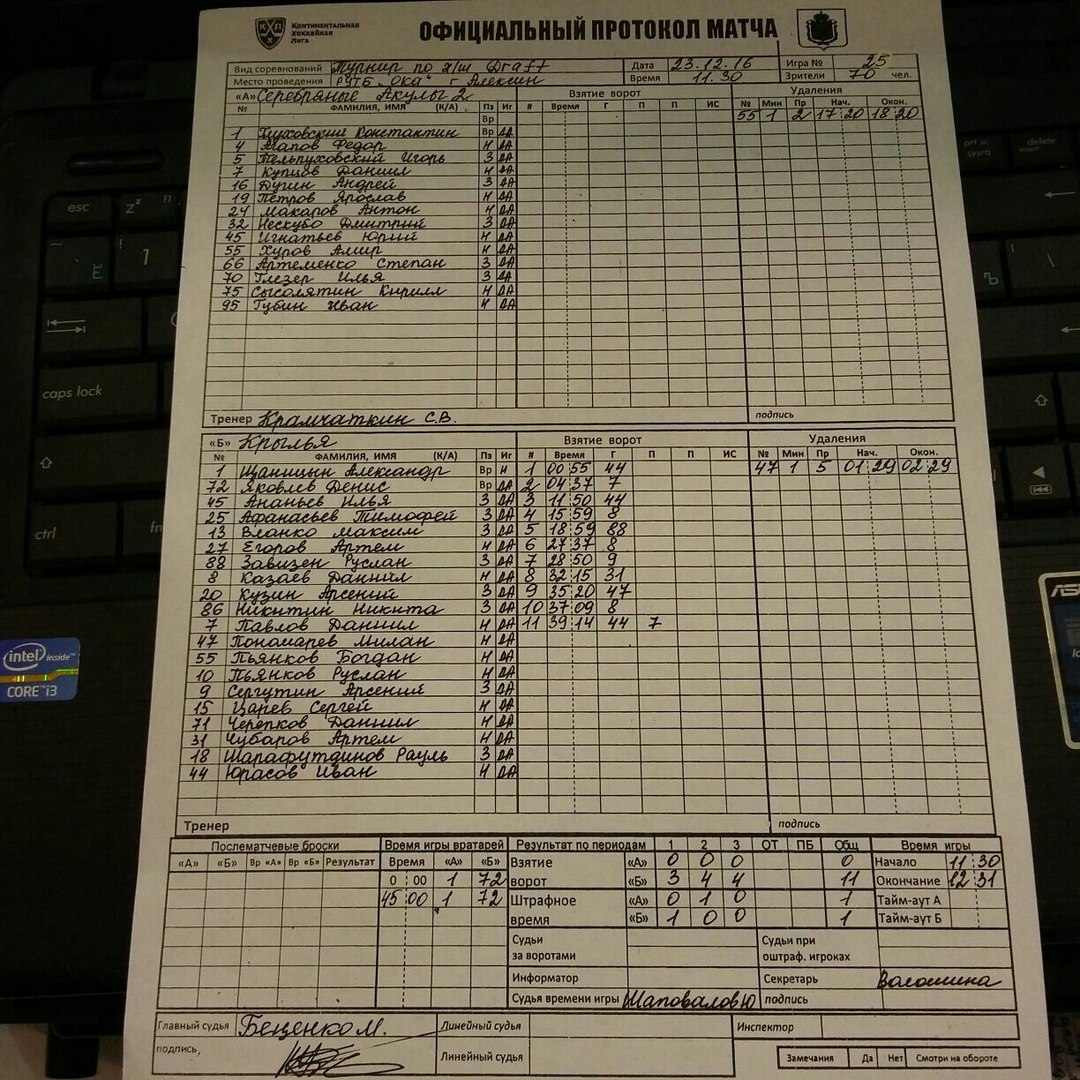 Континентальная
Хоккейная
Лига
ОФИЦИАЛЬНЫЙ ПРОТОКОЛ МАТЧА
Вид соревнований Турнир по х/ш Draft Дата 23.12.16 Игра № 25
Место проведения РУТБ "Ока" г. Алексин Время 11.30 Зрители 70 чел.
«А» Серебряные Акулы 2 Взятие ворот Удаления
№ ФАМИЛИЯ, ИМЯ (К/А) Пз Иг # Время Г П П ИС № Мин Пр Нач. Окон.
Вр 55 1 2 17 20 18 20
1 Глуховский Константин Вр ДА
4 Агапов Федор Н ДА
5 Тельпуховский Игорь З ДА
7 Купцов Даниил Н ДА
16 Дугин Андрей З ДА
19 Петров Ярослав Н ДА
24 Макаров Антон Н ДА
32 Нескубо Дмитрий З ДА
45 Игнатьев Юрий Н ДА
55 Хуров Амир Н ДА
66 Артеменко Степан З ДА
70 Глезер Илья З ДА
75 Сысолятин Кирилл Н ДА
95 Губин Иван Н ДА
Тренер Крамчаткин С.В. подпись
«Б» Крылья Взятие ворот Удаления
№ ФАМИЛИЯ, ИМЯ (К/А) Пз Иг # Время Г П П ИС № Мин Пр Нач. Окон.
1 Щаницын Александр Вр Н 1 00 55 44 47 1 5 01 29 02 29
72 Яковлев Денис Вр ДА 2 04 37 7
45 Ананьев Илья З ДА 3 11 50 44
25 Афанасьев Тимофей З ДА 4 15 59 8
13 Вланко Максим З ДА 5 18 59 88
27 Егоров Артем Н ДА 6 27 37 8
88 Завизен Руслан З ДА 7 28 50 9
8 Казаев Даниил Н ДА 8 32 15 31
20 Кузин Арсений З ДА 9 35 20 47
86 Никитин Никита З ДА 10 37 09 8
7 Павлов Даниил Н ДА 11 39 14 44 7
47 Пономарев Милан Н ДА
55 Пьянков Богдан Н ДА
10 Пьянков Руслан Н ДА
9 Сергутин Арсений З ДА
15 Царев Сергей Н ДА
71 Черепков Даниил Н ДА
31 Чубаров Артем Н ДА
18 Шарафутдинов Рауль З ДА
44 Юрасов Иван Н ДА
Тренер подпись
Послематчевые броски Время игры вратарей Результат по периодам 1 2 3 ОТ ПБ Общ Время игры
«А» «Б» Вр «А» Вр «Б» Результат Время «А» «Б» Взятие «А» 0 0 0 0 Начало 11 30
0 00 1 72 ворот «Б» 3 4 4 11 Окончание 12 31
45 00 1 72 Штрафное «А» 0 1 0 1 Тайм-аут А
время «Б» 1 0 0 1 Тайм-аут Б
Судьи Судьи при
за воротами оштраф. игроках
Информатор Секретарь Волошина
Судья времени игры Шаповалов Ю подпись
Главный судья Беценко М. Линейный судья Инспектор
подпись, Линейный судья Замечания Да Нет Смотри на обороте
esc
Z
Ё
1
caps lock
ctrl
fn
prt sc
sysrq
delete
intel inside
CORE i3